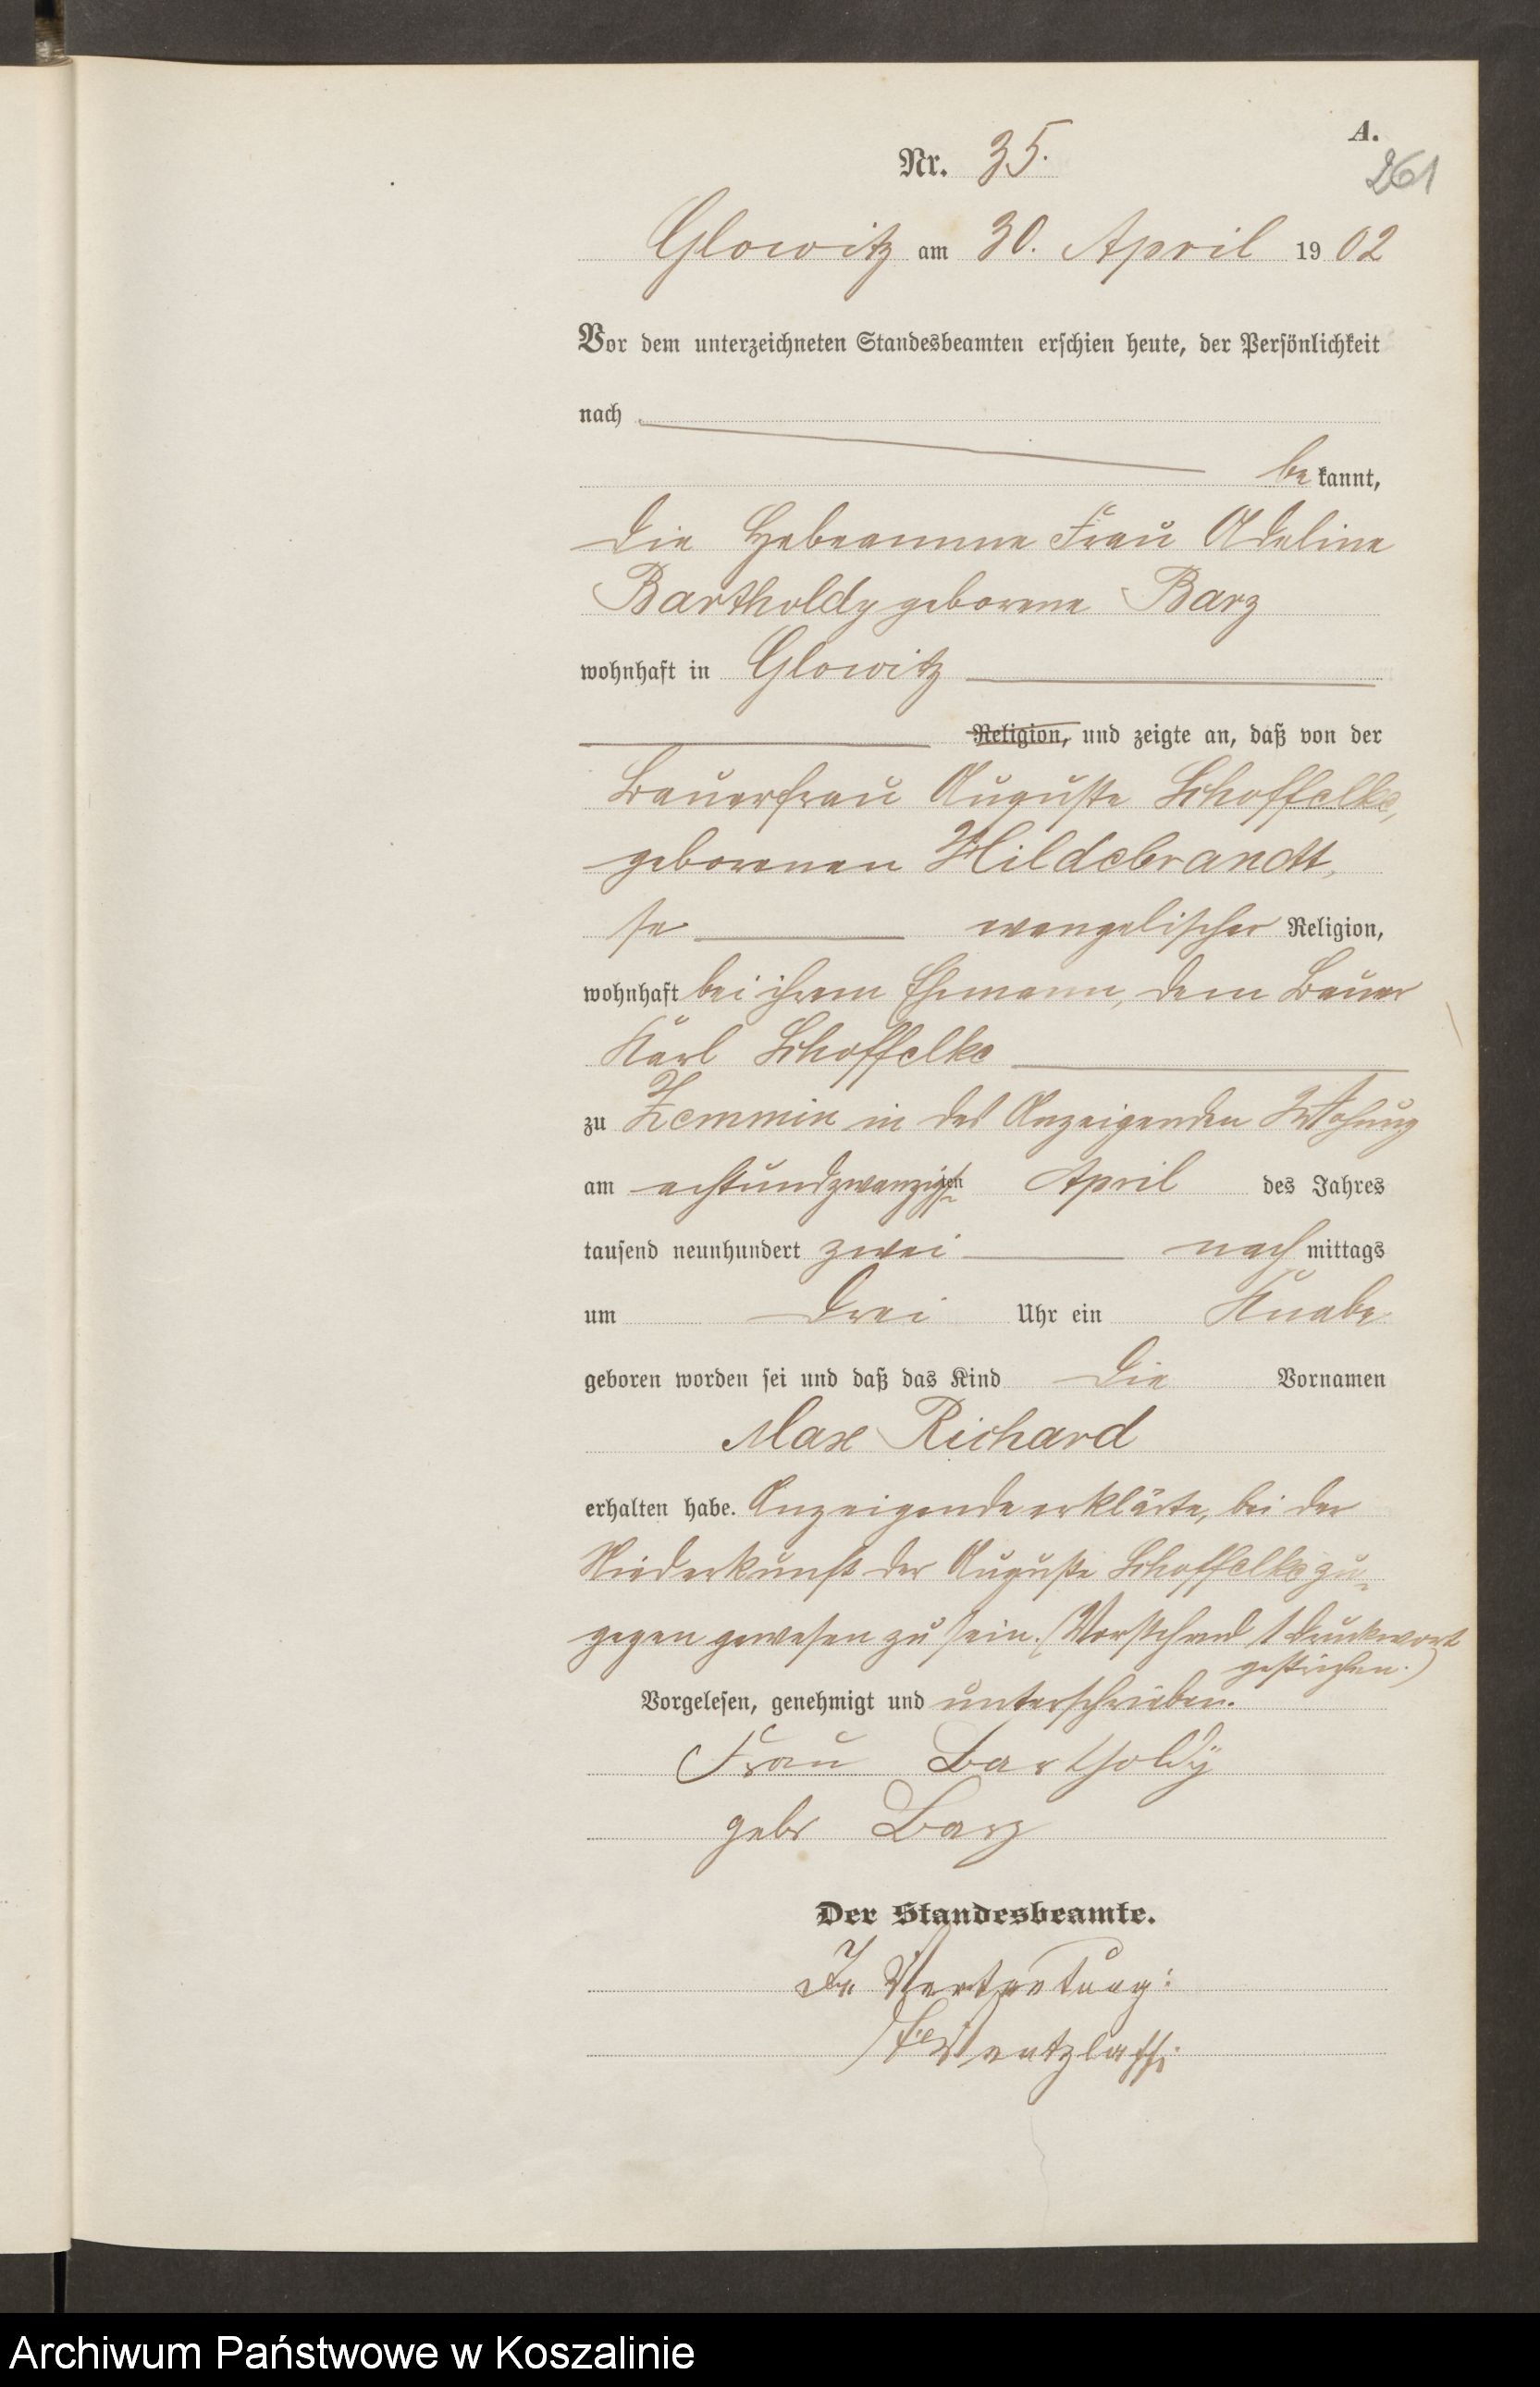 A.
261
Nr. 35.
Glowitz am 30. April 1902
Vor dem unterzeichneten Standesbeamten erschien heute, der Persönlichkeit
nach
be kannt,
die Hebeamme Frau Adeline
Bartholdy geborene Barz
wohnhaft in Glowitz
Religion, und zeigte an, daß von der
Bauerfrau Auguste Schoffelke,
geborenen Hildebrandt,
evangelischer Religion,
wohnhaft bei ihrem Ehemann, dem Bauer
Karl Schoffelke
zu Zemmin in des Anzeigenden
am achtundzwanzigsten April des Jahres
tausend neunhundert zwei nach mittags
um drei Uhr ein Knabe
geboren worden sei und daß das Kind die Vornamen
Max Richard
erhalten habe. Anzeigende erklärte, bei der
Niederkunft der Auguste Schoffelke zu-
gegen gewesen zu sein. (Vorstehend 1 Druckwort
gestrichen.)
Vorgelesen, genehmigt und unterschrieben.
Frau Bartholdÿ
gebr Barz
Der Standesbeamte.
In Vertretung:
Wentzlaff.
Archiwum Państwowe w Koszalinie